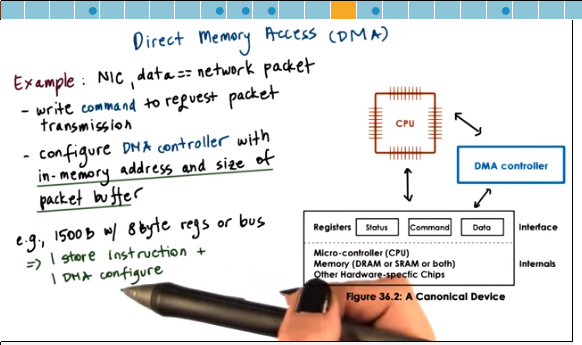 Direct Memory Access (DMA)
Example: NIC, data == network packet
- write command to request packet
transmission
- configure DMA controller with
in-memory address and size of
packet buffer
e.g., 1500B w/ 8byte regs or bus
=> 1 store instruction +
1 DMA configure
CPU
DMA controller
Registers Status Command Data Interface
Micro-controller (CPU)
Memory (DRAM or SRAM or both) Internals
Other Hardware-specfic Chips
Figure 36.2: A Canonical Device